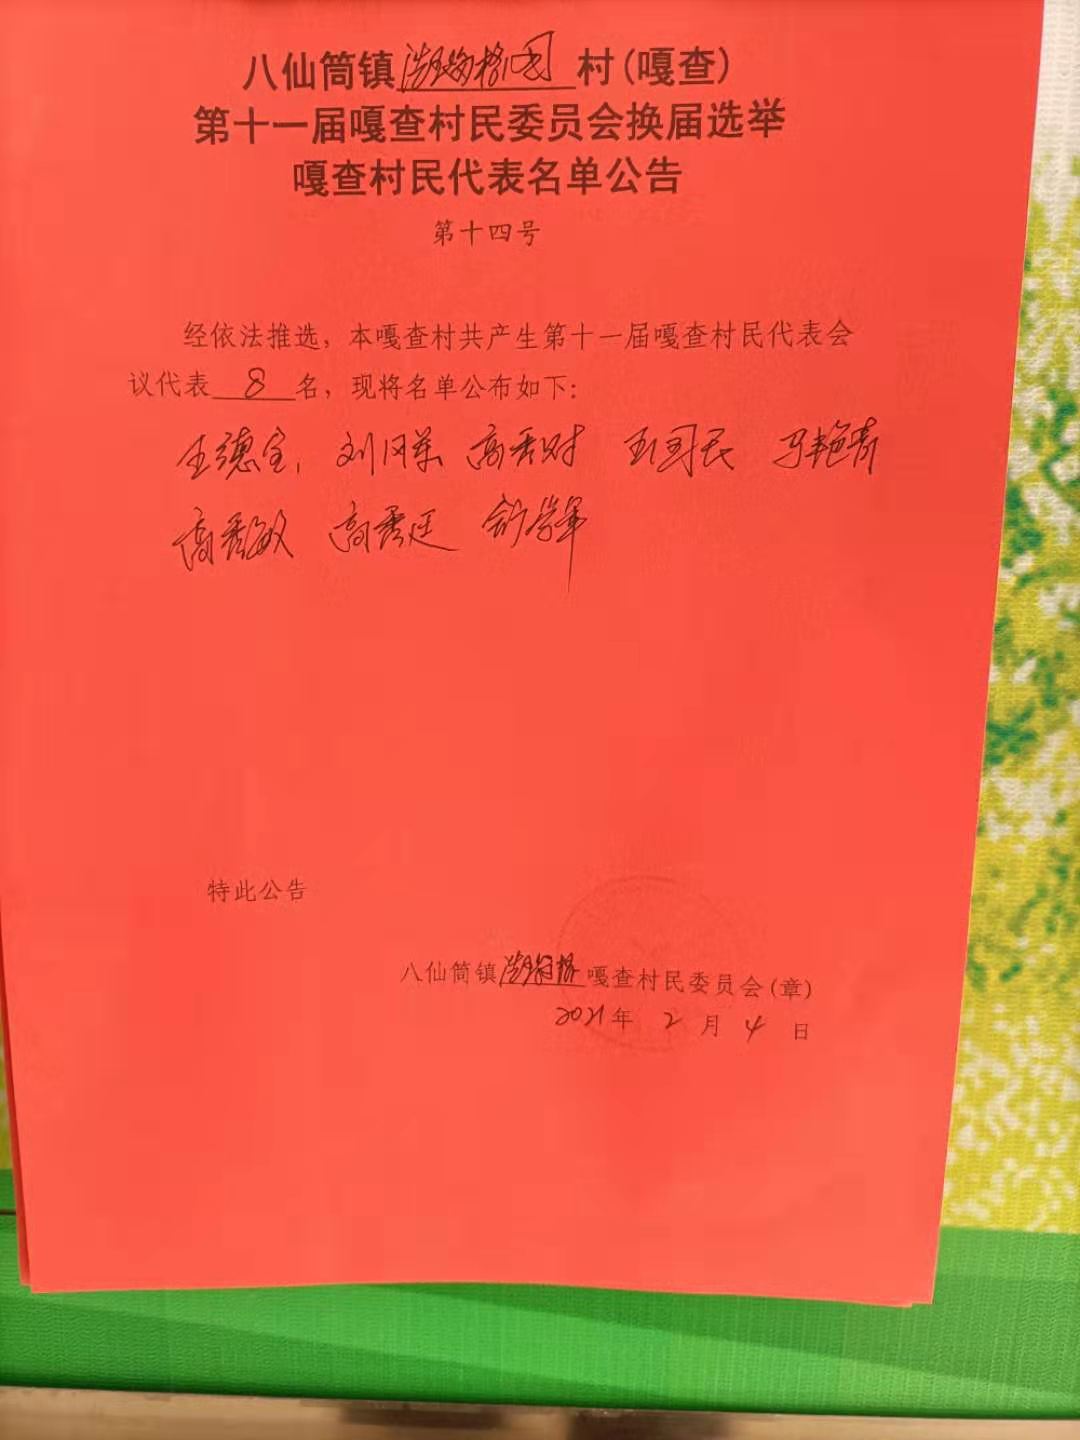 八仙筒镇 村(嘎查)
第十一届嘎查村民委员会换届选举
嘎查村民代表名单公告
第十四号
经依法推选，本嘎查村共产生第十一届嘎查村民代表会
议代表 8 名，现将名单公布如下：
王德宝, 高秀财 王国民 马艳青
高秀敏 高秀廷
特此公告
八仙筒镇 嘎查村民委员会(章)
2021年 2 月 4 日